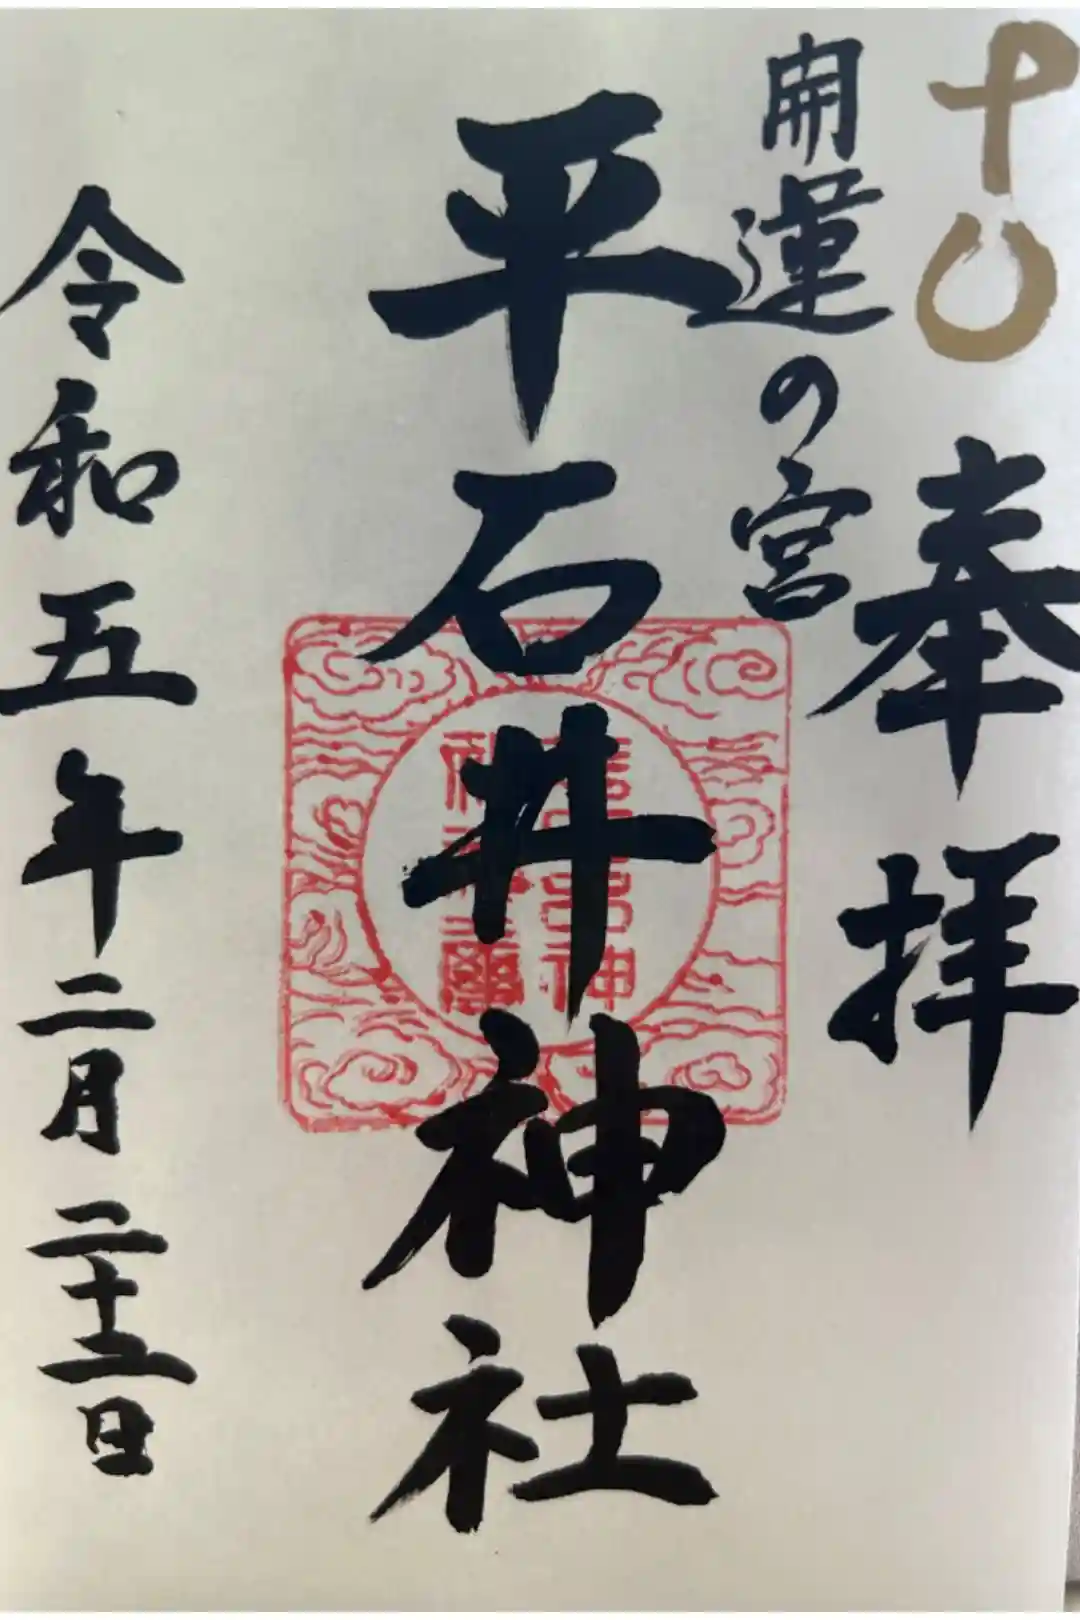 十
奉拝
開運の宮
平石井神社
令和五年二月二十二日